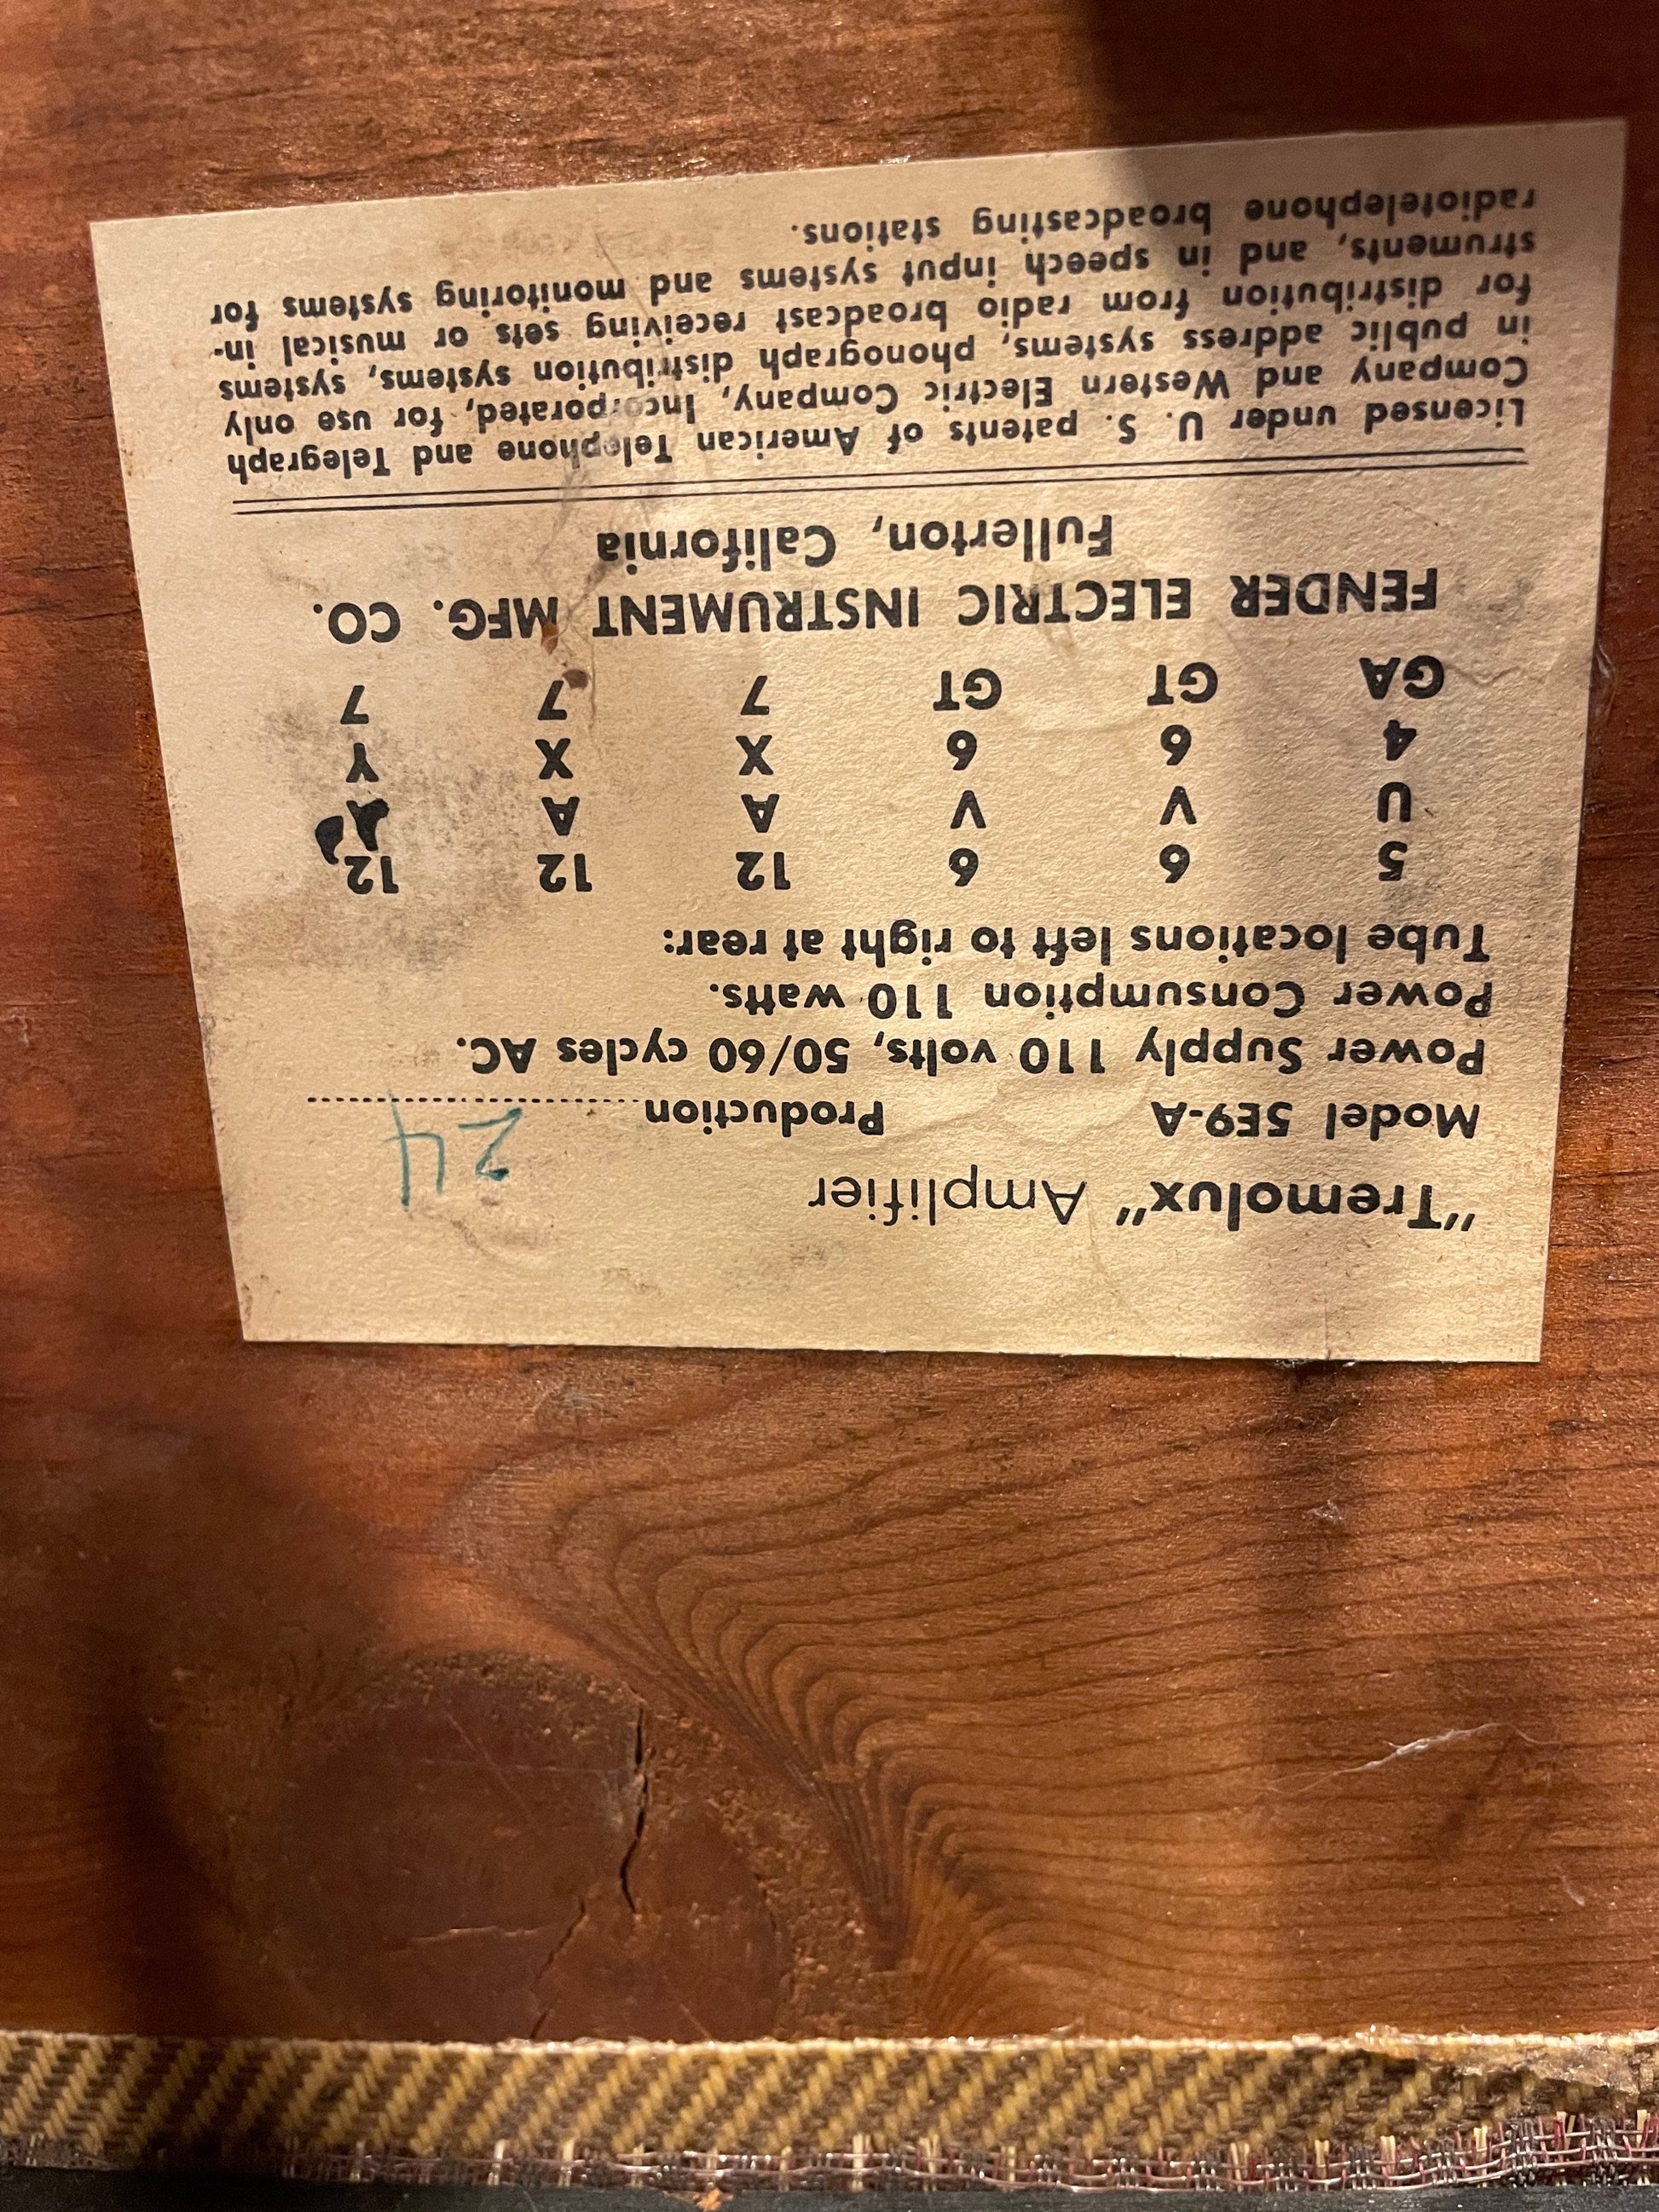 "Tremolux" Amplifier
Model 5E9-A Production 24
Power Supply 110 volts, 50/60 cycles AC.
Power Consumption 110 watts.
Tube locations left to right at rear:
5 6 6 12 12 12
U V V A A A
4 6 6 X X Y
GA GT GT 7 7 7
FENDER ELECTRIC INSTRUMENT MFG. CO.
Fullerton, California
Licensed under U. S. patents of American Telephone and Telegraph
Company and Western Electric Company, Incorporated, for use only
in public address systems, phonograph distribution systems, systems
for distribution from radio broadcast receiving sets or musical in-
struments, and in speech input systems and monitoring systems for
radiotelephone broadcasting stations.